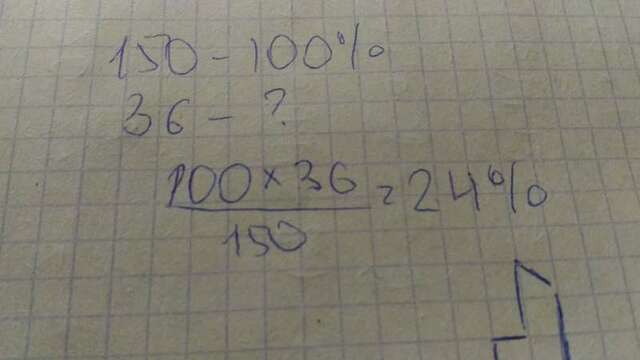 150 - 100%
36 - ?
100 × 36
150
= 24%